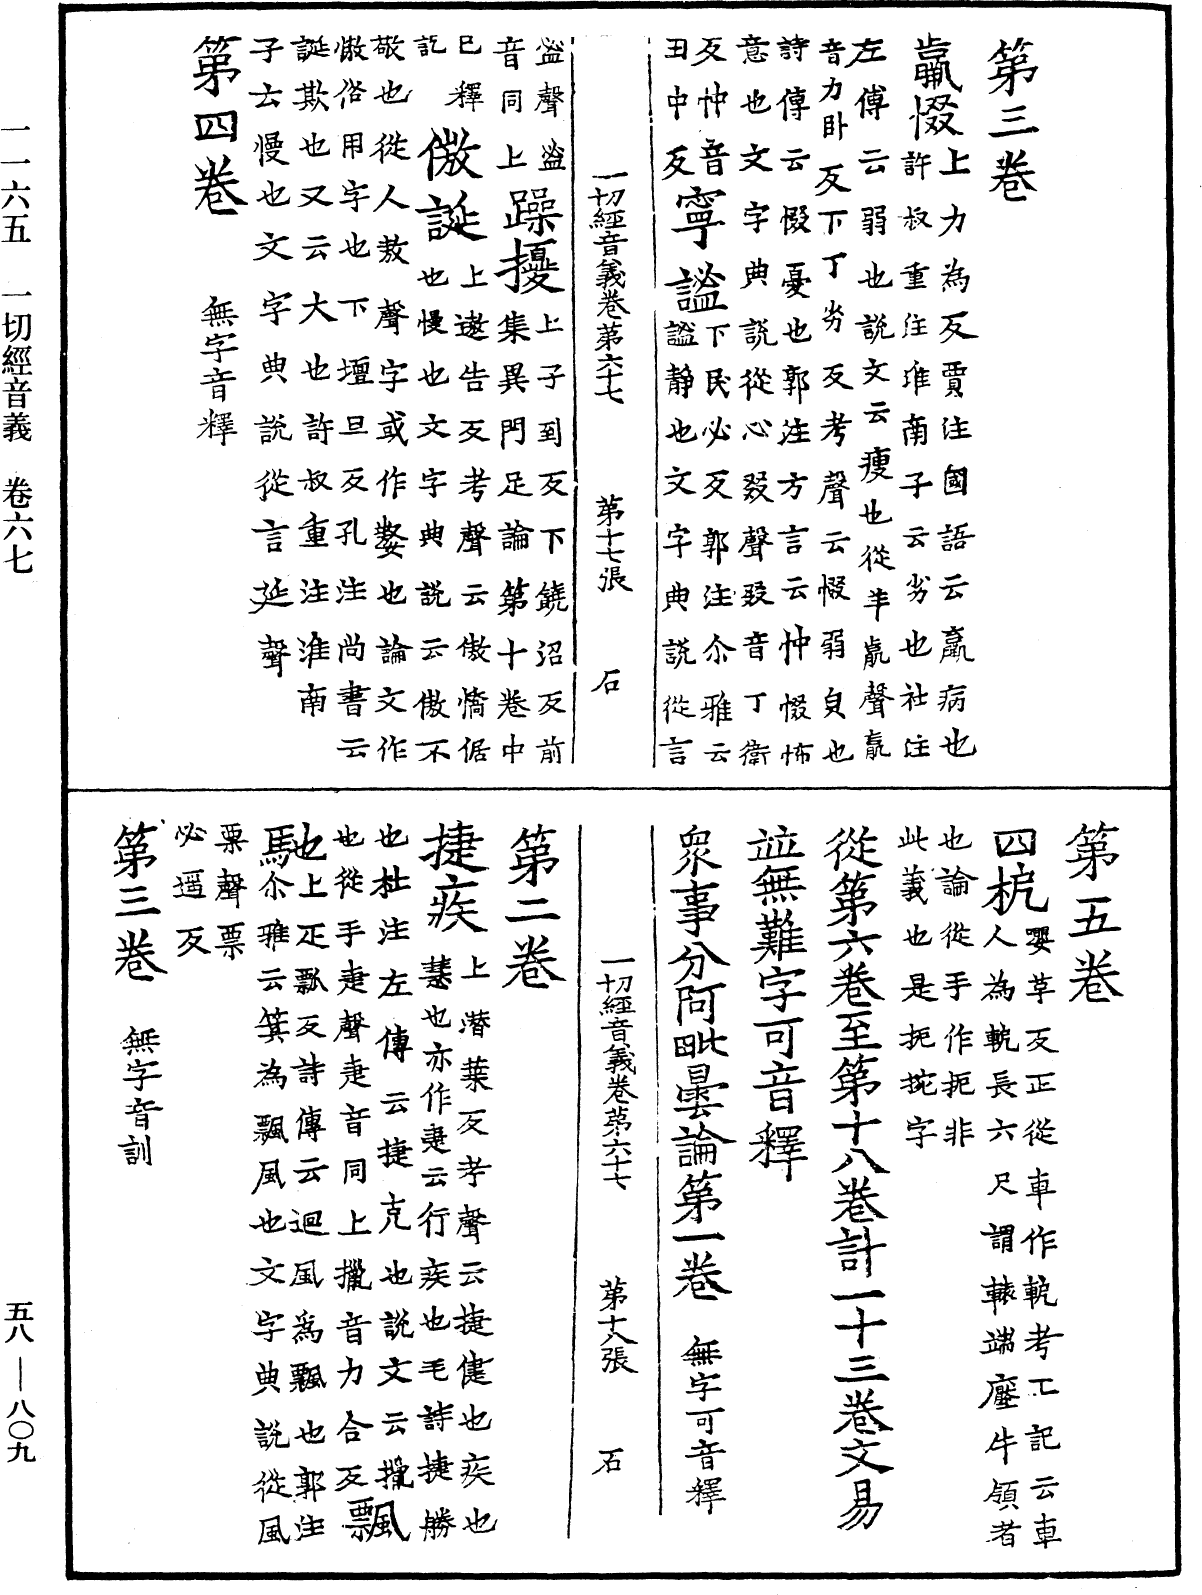 第三卷
羸惙上力為反賈注國語云羸病也
許叔重注淮南子云劣也社注
左傅云弱也說文云瘦也從羊𣎆聲𣎆
音力卧反下丁劣反考聲云惙弱皃也
詩傳云惙憂也郭注方言云忡惙怖
意也文字典說從心叕聲叕音丁衛
反忡音
丑中反寧謐下民必反郭注尒雅云
謐靜也文字典說從言
一切經音義卷第六十七　第十七張　石
䀌聲䀌
音同上躁擾上子到反下饒沼反前
集異門足論第十卷中
已釋
訖傲誕上遨告反考聲云傲憍倨
也慢也文字典說云傲不
敬也從人敖聲字或作嫯也論文作
慠俗用字也下壇旦反孔注尚書云
誕欺也又云大也許叔重注淮南
子云慢也文字典說從言延聲
第四卷　無字音釋
第五卷
四枙嬰革反正從車作軛考工記云車
人為軛長六尺謂轅端壓牛領者
也論從手作扼非
此義也是扼捥字
從第六卷至第十八卷計一十三卷文易
竝無難字可音釋
眾事分阿毗曇論第一卷　無字可音釋
一切經音義卷第六十七　第十八張　石
第二卷
捷疾上潛葉反考聲云捷健也疾也
慧也亦作疌云行疾也毛詩捷勝
也杜注左傳云捷克也說文云獵
也從手疌聲疌音同上擸音力合反飄
馳上疋飄反詩傳云迴風為飄也郭注
尒雅云箕為飄風也文字典說從風
票聲票
必遥反
第三卷　無字音訓
一一六五　一切經音義　卷六七
五八—八〇九